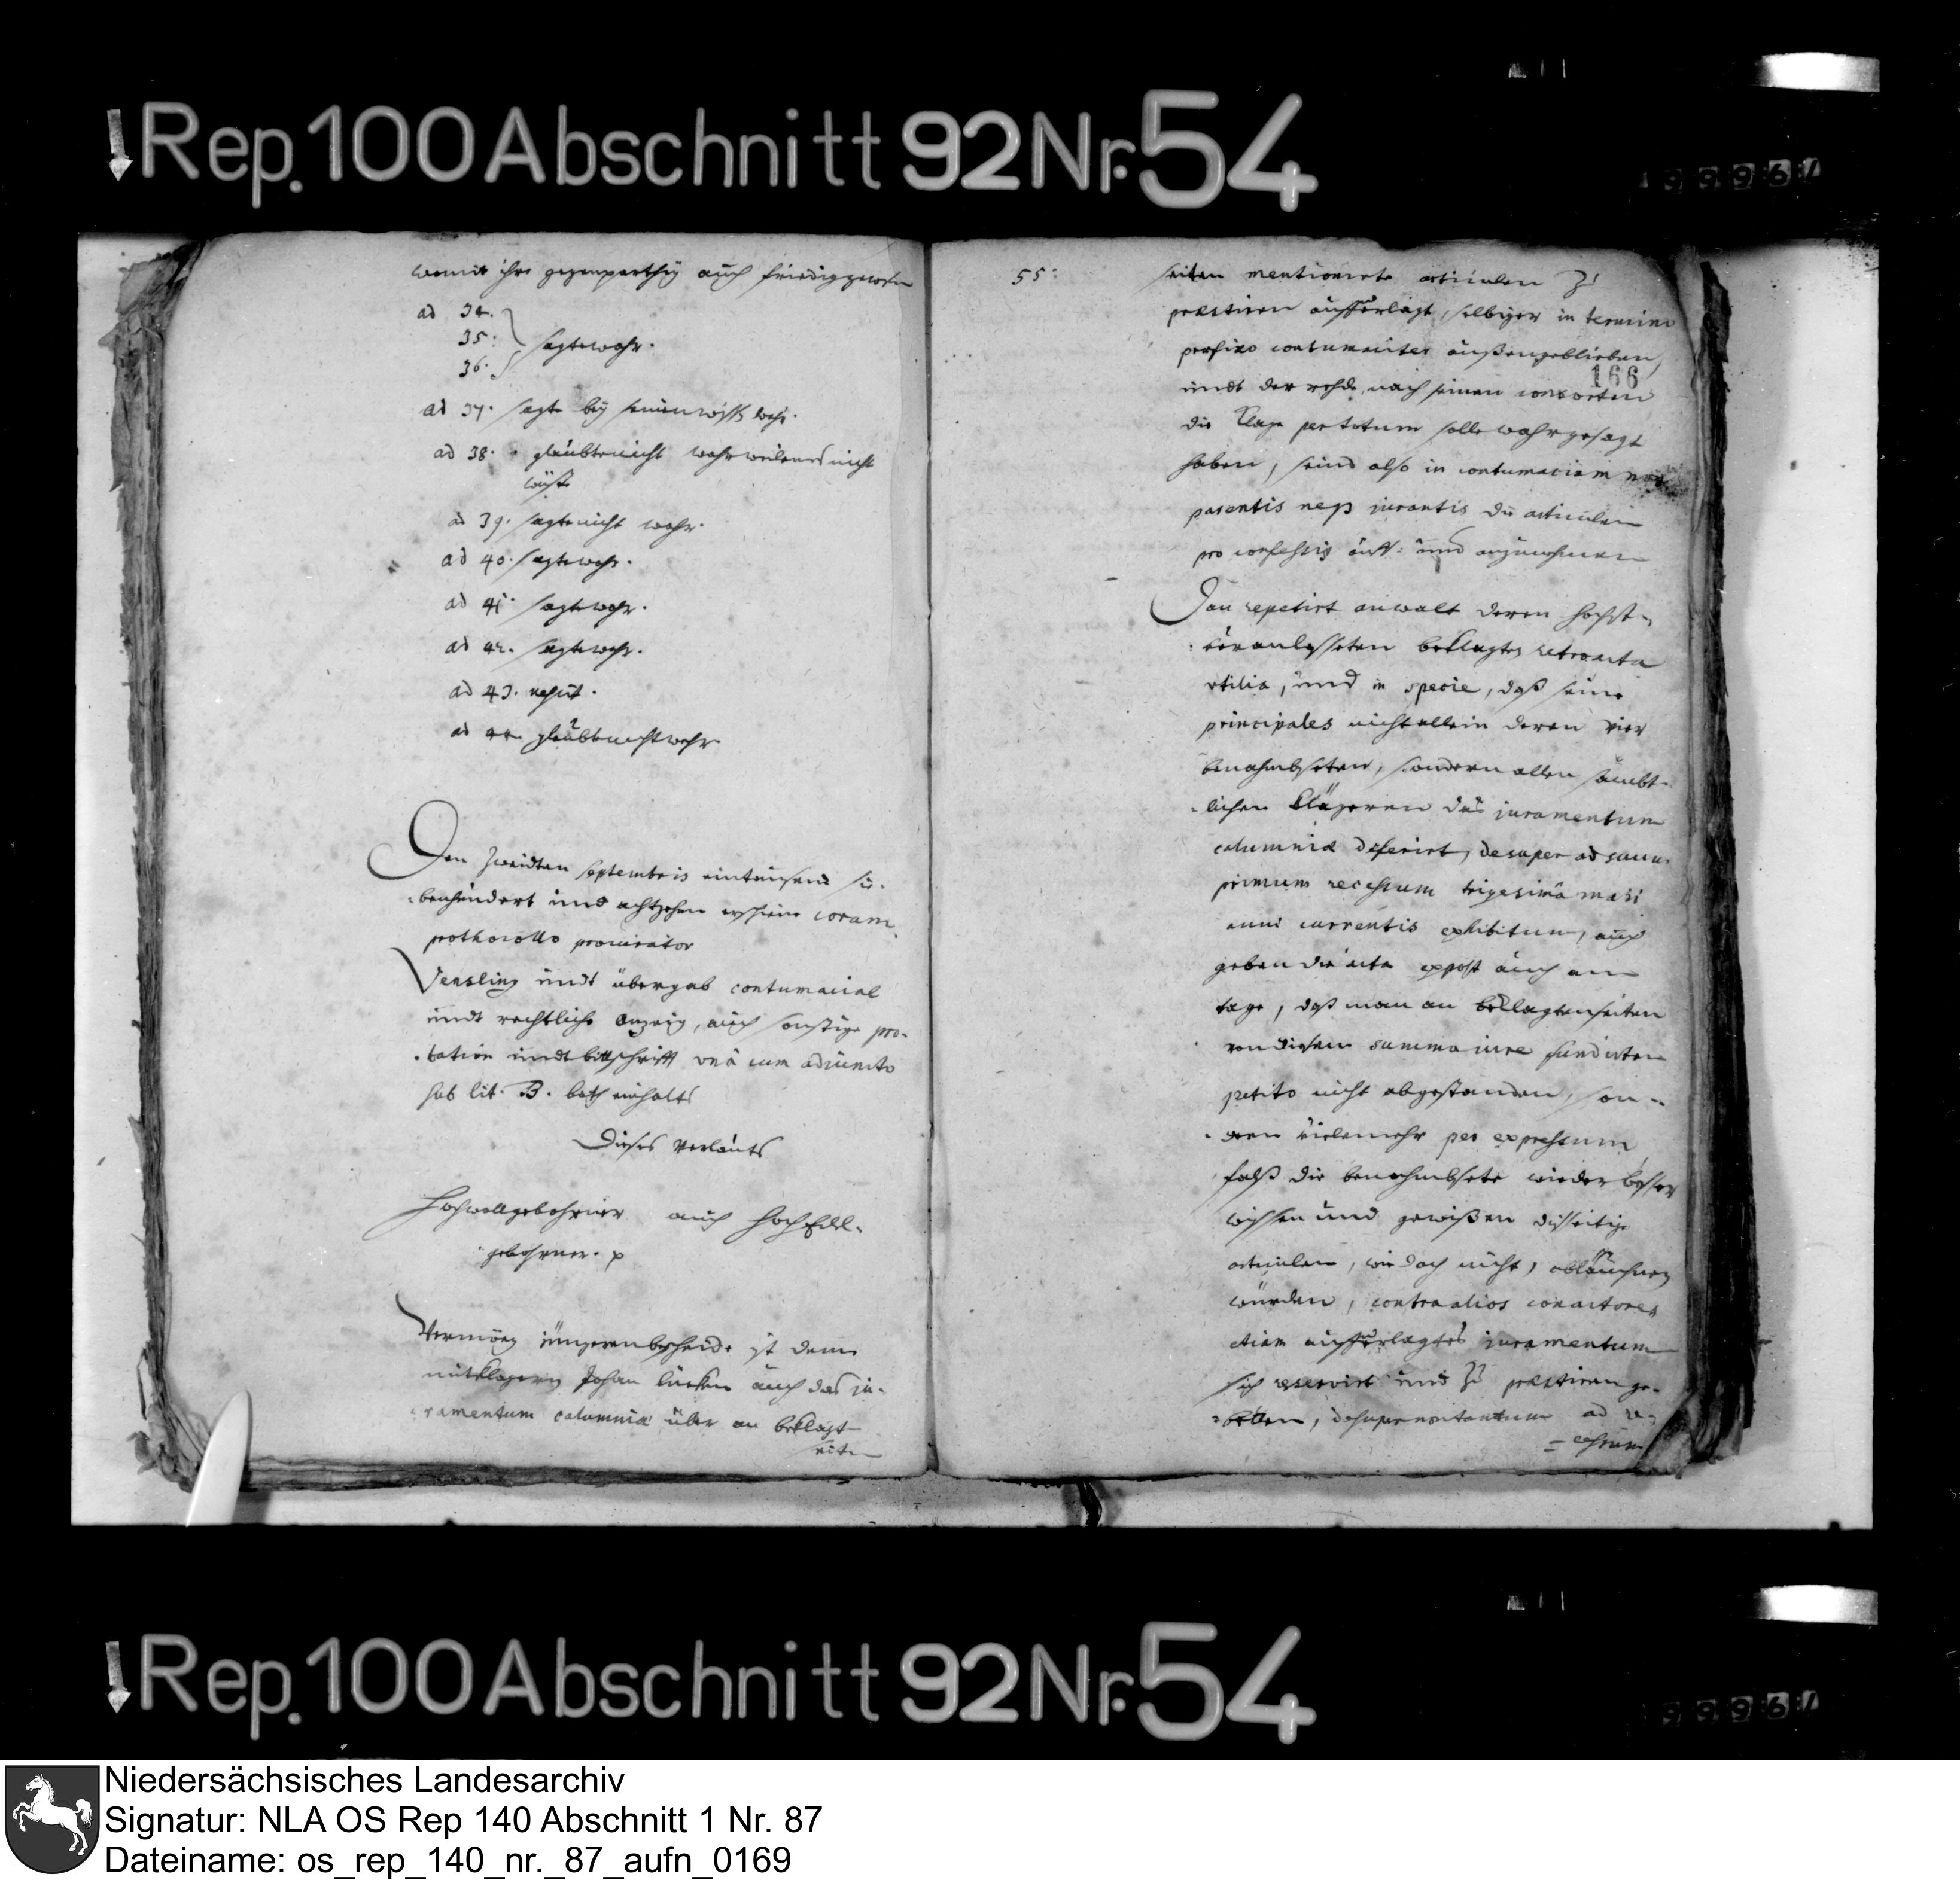 Rep. 100 Abschnitt 92 Nr. 54
99961
womit ihre gegenparthey auch friedig gewesen
ad 34.
35: sagte wahr.
36.
ad 37. sagte bey seinem wißen wahr.
ad 38. glaubte nicht wahr weilen es nicht
wüste
ad 39. sagte nicht wahr.
ad 40. sagte wahr.
ad 41. sagte wahr.
ad 42. sagte wahr.
ad 43. nescit.
ad 44. glaubte nicht wahr
Den zweidten septembris eintausend sie-
benhundert und achtzehen erschiene coram
prothocollo procurator
Vensling undt übergab contumacial
undt rechtliche anzeig, auch sonstige pro-
bation undt bittschrifft unà cum adiuncto
sub lit. B. bath einhalts
Dieses verlauts
Hochwollgebohrner auch HochEdel-
gebohrner. p
Vermög jüngeren bescheide ist dem
mitklagern Johan auch das ju-
ramentum calumniæ über an beklagt
seiten
55:
seiten mentionirte articulen zu
præstiren aufferlagt, selbiger in termino
præfixo contumaciter außengeblieben,
166
undt der nach seinen consorten
die Klage per totum solle wahr gesagt
haben, seind also in contumaciam non
parentis neque jurantis die articulen
pro confessis auff: und anzunehmen
Dan repetirt anwalt deren höchst-
veranlasseten beklagten retroacta
utilia, und in specie, daß seine
principales nicht allein deren vier
benahmbseten, sondern allen sämbt-
lichen Klägeren das juramentum
calumniæ deferirt, desuper ad suum
primum recessum trigesimâ maii
anni currentis exhibitum, auch
geben die acta expost auch am
tage, daß man an beklagten seiten
von diesem summo iure fundirten
petito nicht abgestanden, son-
dern vielmehr per expressum
falß die benahmbsete wieder besser
wissen und gewißen disseitige
articulen, wie doch nicht, abläuchnen
würden, contra alios conactores
etiam aufferlagtes juramentum
sich reservirt und zu præstiren ge-
betten, desuper non tantum ad re-
cessum
Rep. 100 Abschnitt 92 Nr. 54
99961
Niedersächsisches Landesarchiv
Signatur: NLA OS Rep 140 Abschnitt 1 Nr. 87
Dateiname: os_rep_140_nr._87_aufn_0169